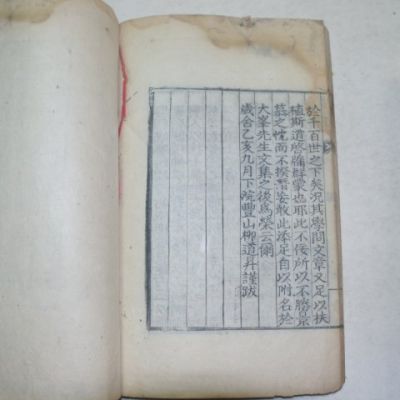 於千百世之下矣況其學問文章又足以扶
植斯道啓牖群蒙也耶此不佞所以不勝景
慕之忱而不揆僭妄敢此添足自以附名於
大峯先生文集之後爲榮云爾
歲舍乙亥九月下浣豐山柳道丹謹跋